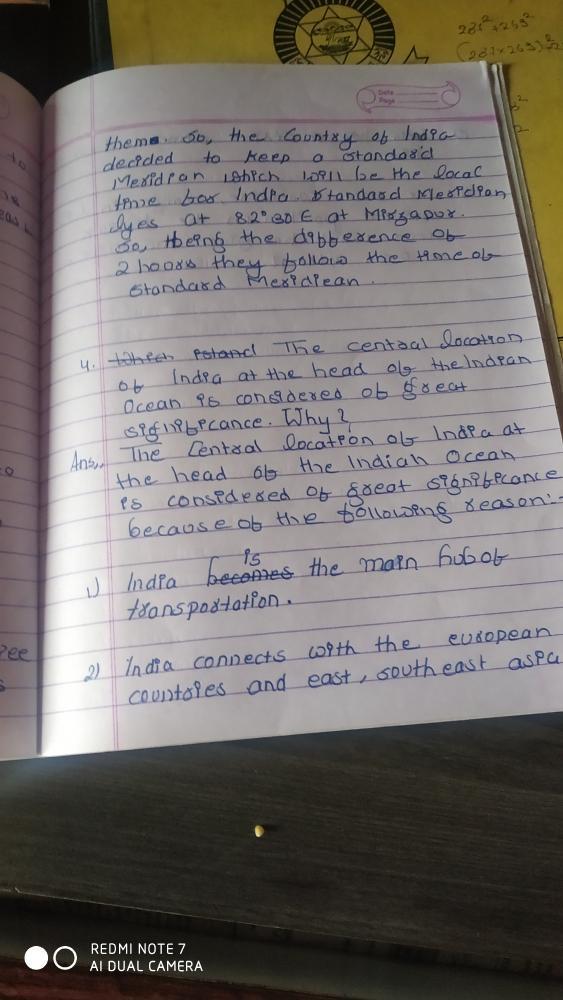 Date
Page
them. So, the Country of India
decided to keep a standard
Meridian which will be the local
time for India. Standard Meridian
lyes at 82°30 E at Mirzapur.
So, being the difference of
2 hours they follow the time of
Standard Meridiean.
4. Which The central location
of India at the head of the Indian
Ocean is considered of great
significance. Why?
Ans.. The Central location of India at
the head of the Indian Ocean
is considered of great significance
because of the following reason:-
1) India becomes is the main hub of
transportation.
2) India connects with the european
countries and east, southeast asia
REDMI NOTE 7
AI DUAL CAMERA